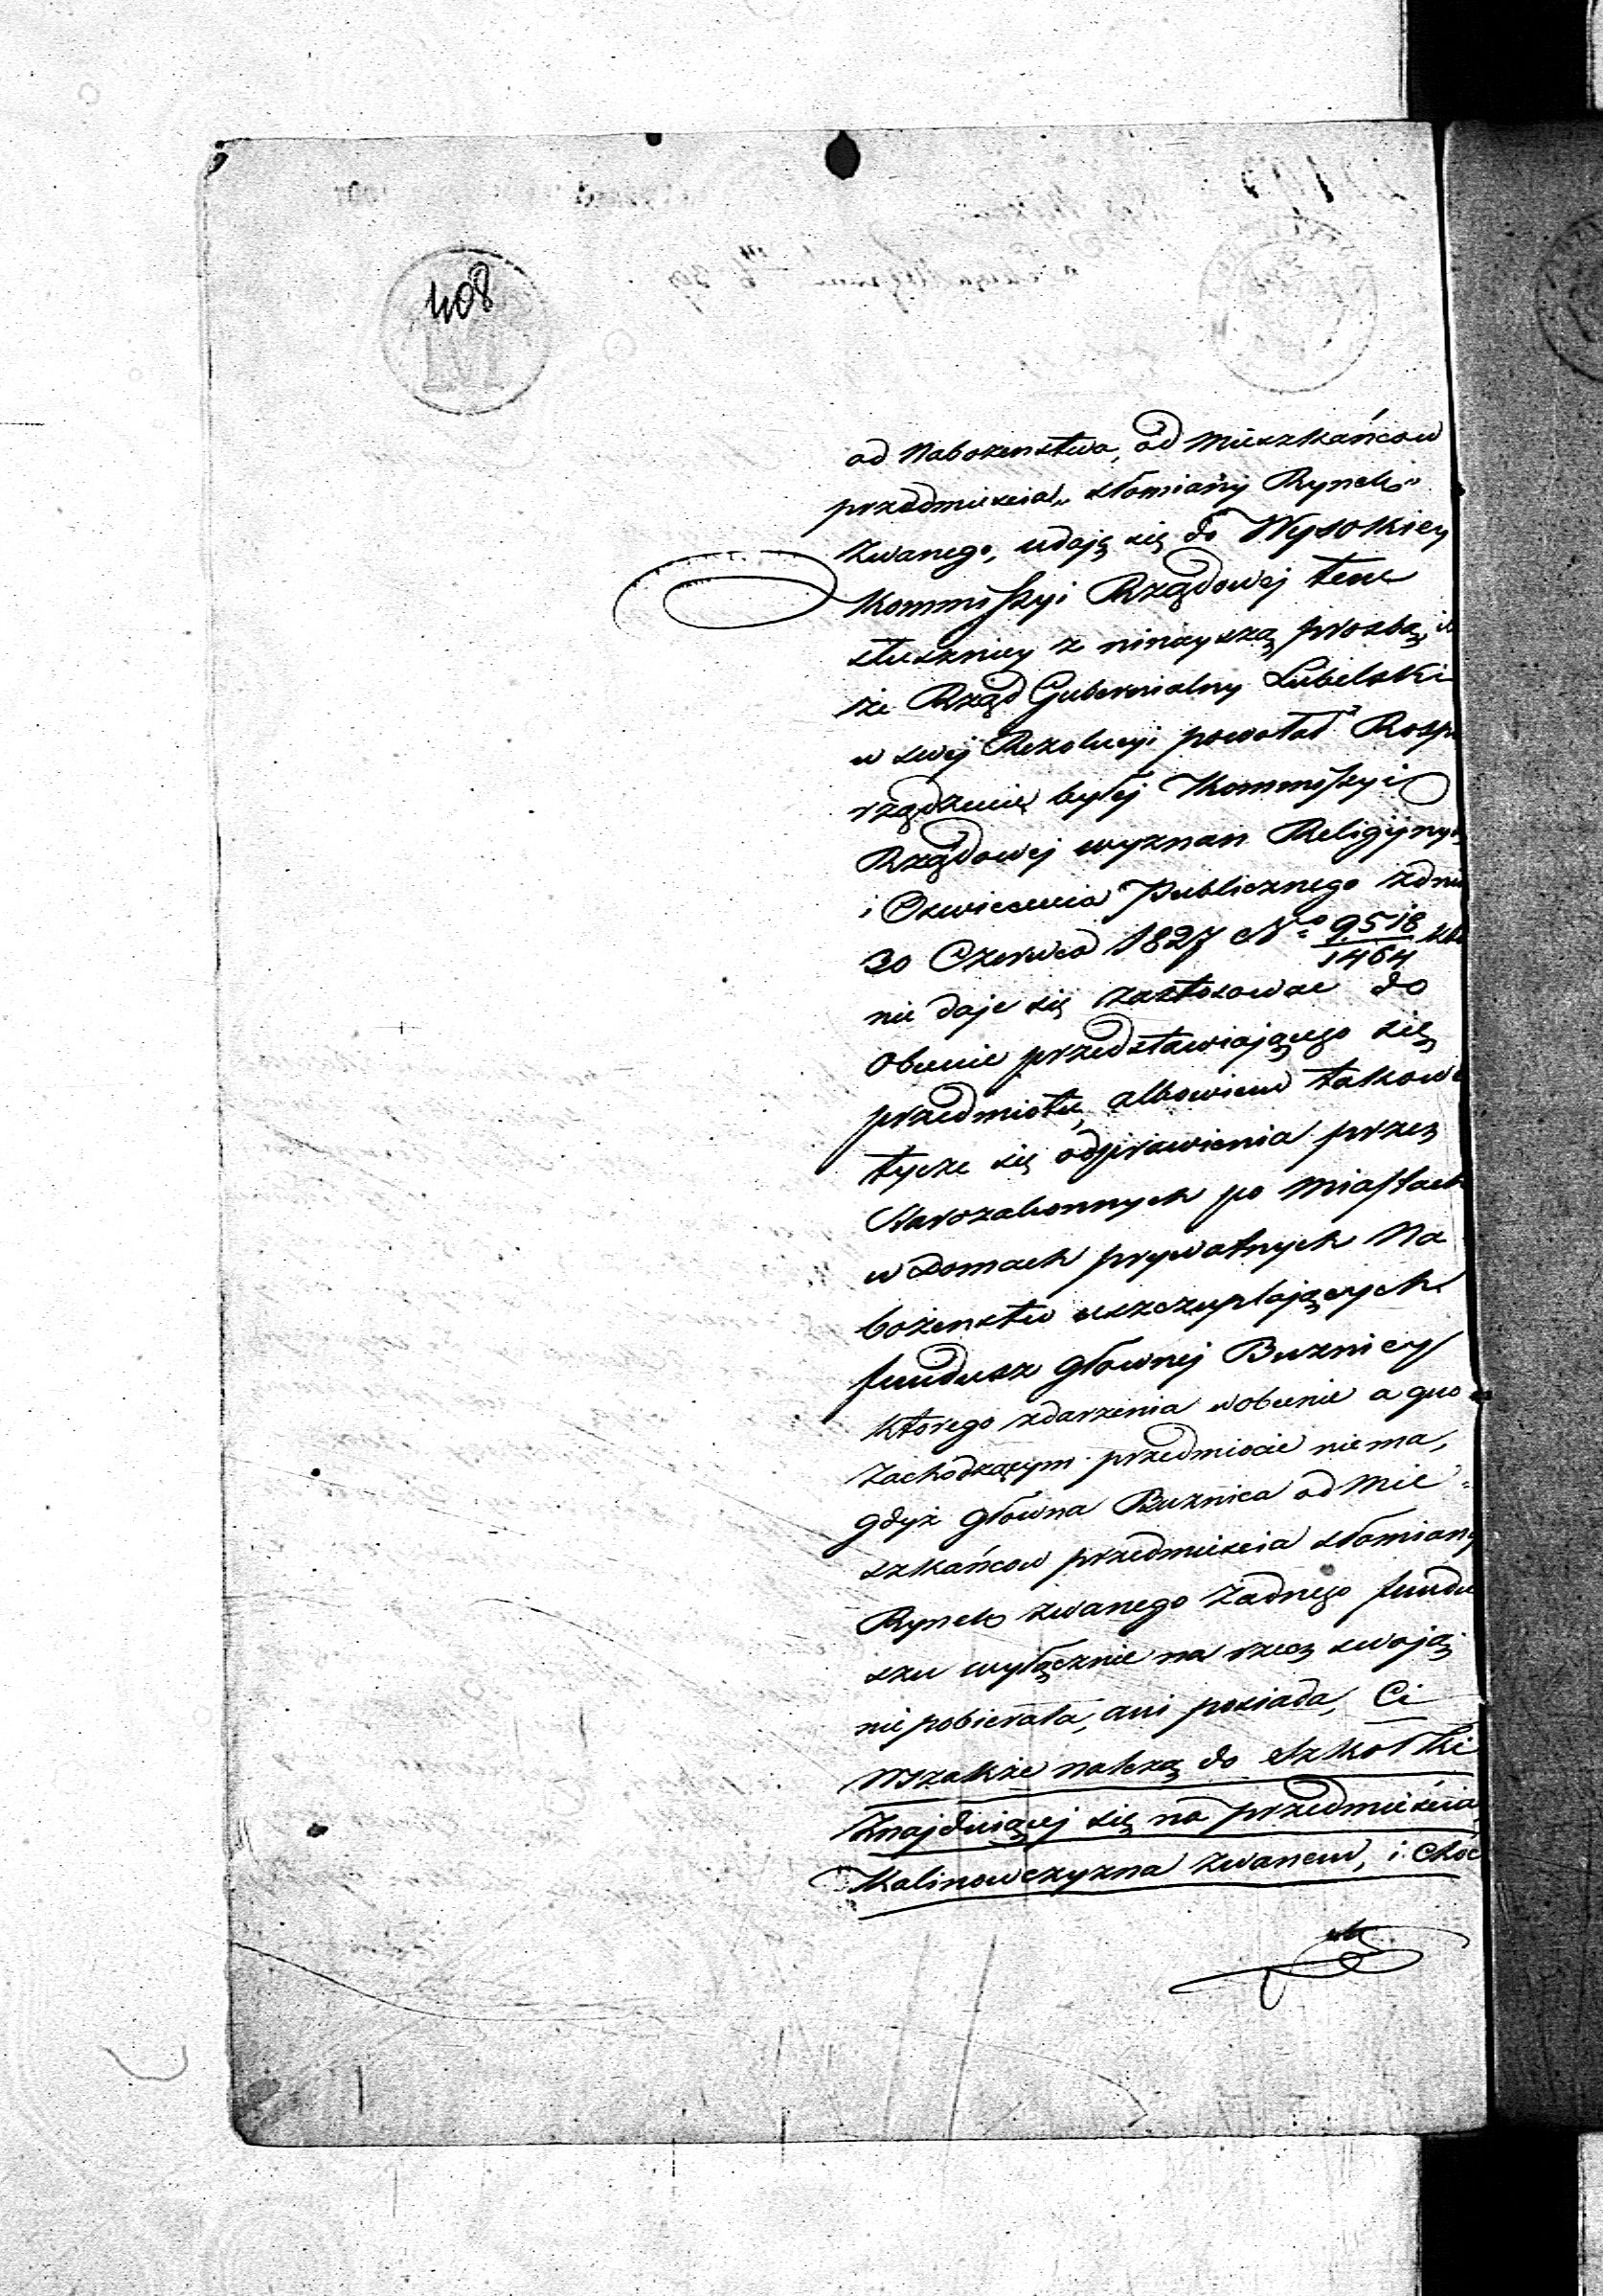 408
od Nabozenstwa, od Mieszkańcow
przedmiescia „ słomiany Rynek"
zwanego, udają się do Wysokiey
Kommissyi Rządowej tem
słuszniey z ninieyszą prozbą,
że Rząd Gubernialny Lubelski
w swej Rezolucyi powołał Rospo
rządzenie byłej Kommissyi
Rządowej wyznan Religijnych
i Oswiecenia Publicznego z dnia
30 Czerwca 1827 No 9518/1464
nie daje się zastosowac do
Obecnie przedstawiającego się
przedmiotu, albowiem takowe
tycze się odprawienia przez
Starozakonnych po Miastach
w Domach prywatnych Na
bożenstw uszczuplających
fundusz głownej Buznicy
którego zdarzenia w obecnie a quo
zachodzącym przedmiocie niema,
gdyż głowna Buznica od Mie=
szkańcow przedmiescia słomiany
Rynek zwanego żadnego fundu
szu wyłącznie na rzecz swoją
nie pobierała, ani posiada, Ci
wszakże należą do Szkołki
Znajduiącej się na przedmiesciu
Kalinowczyzna zwanem, i choć